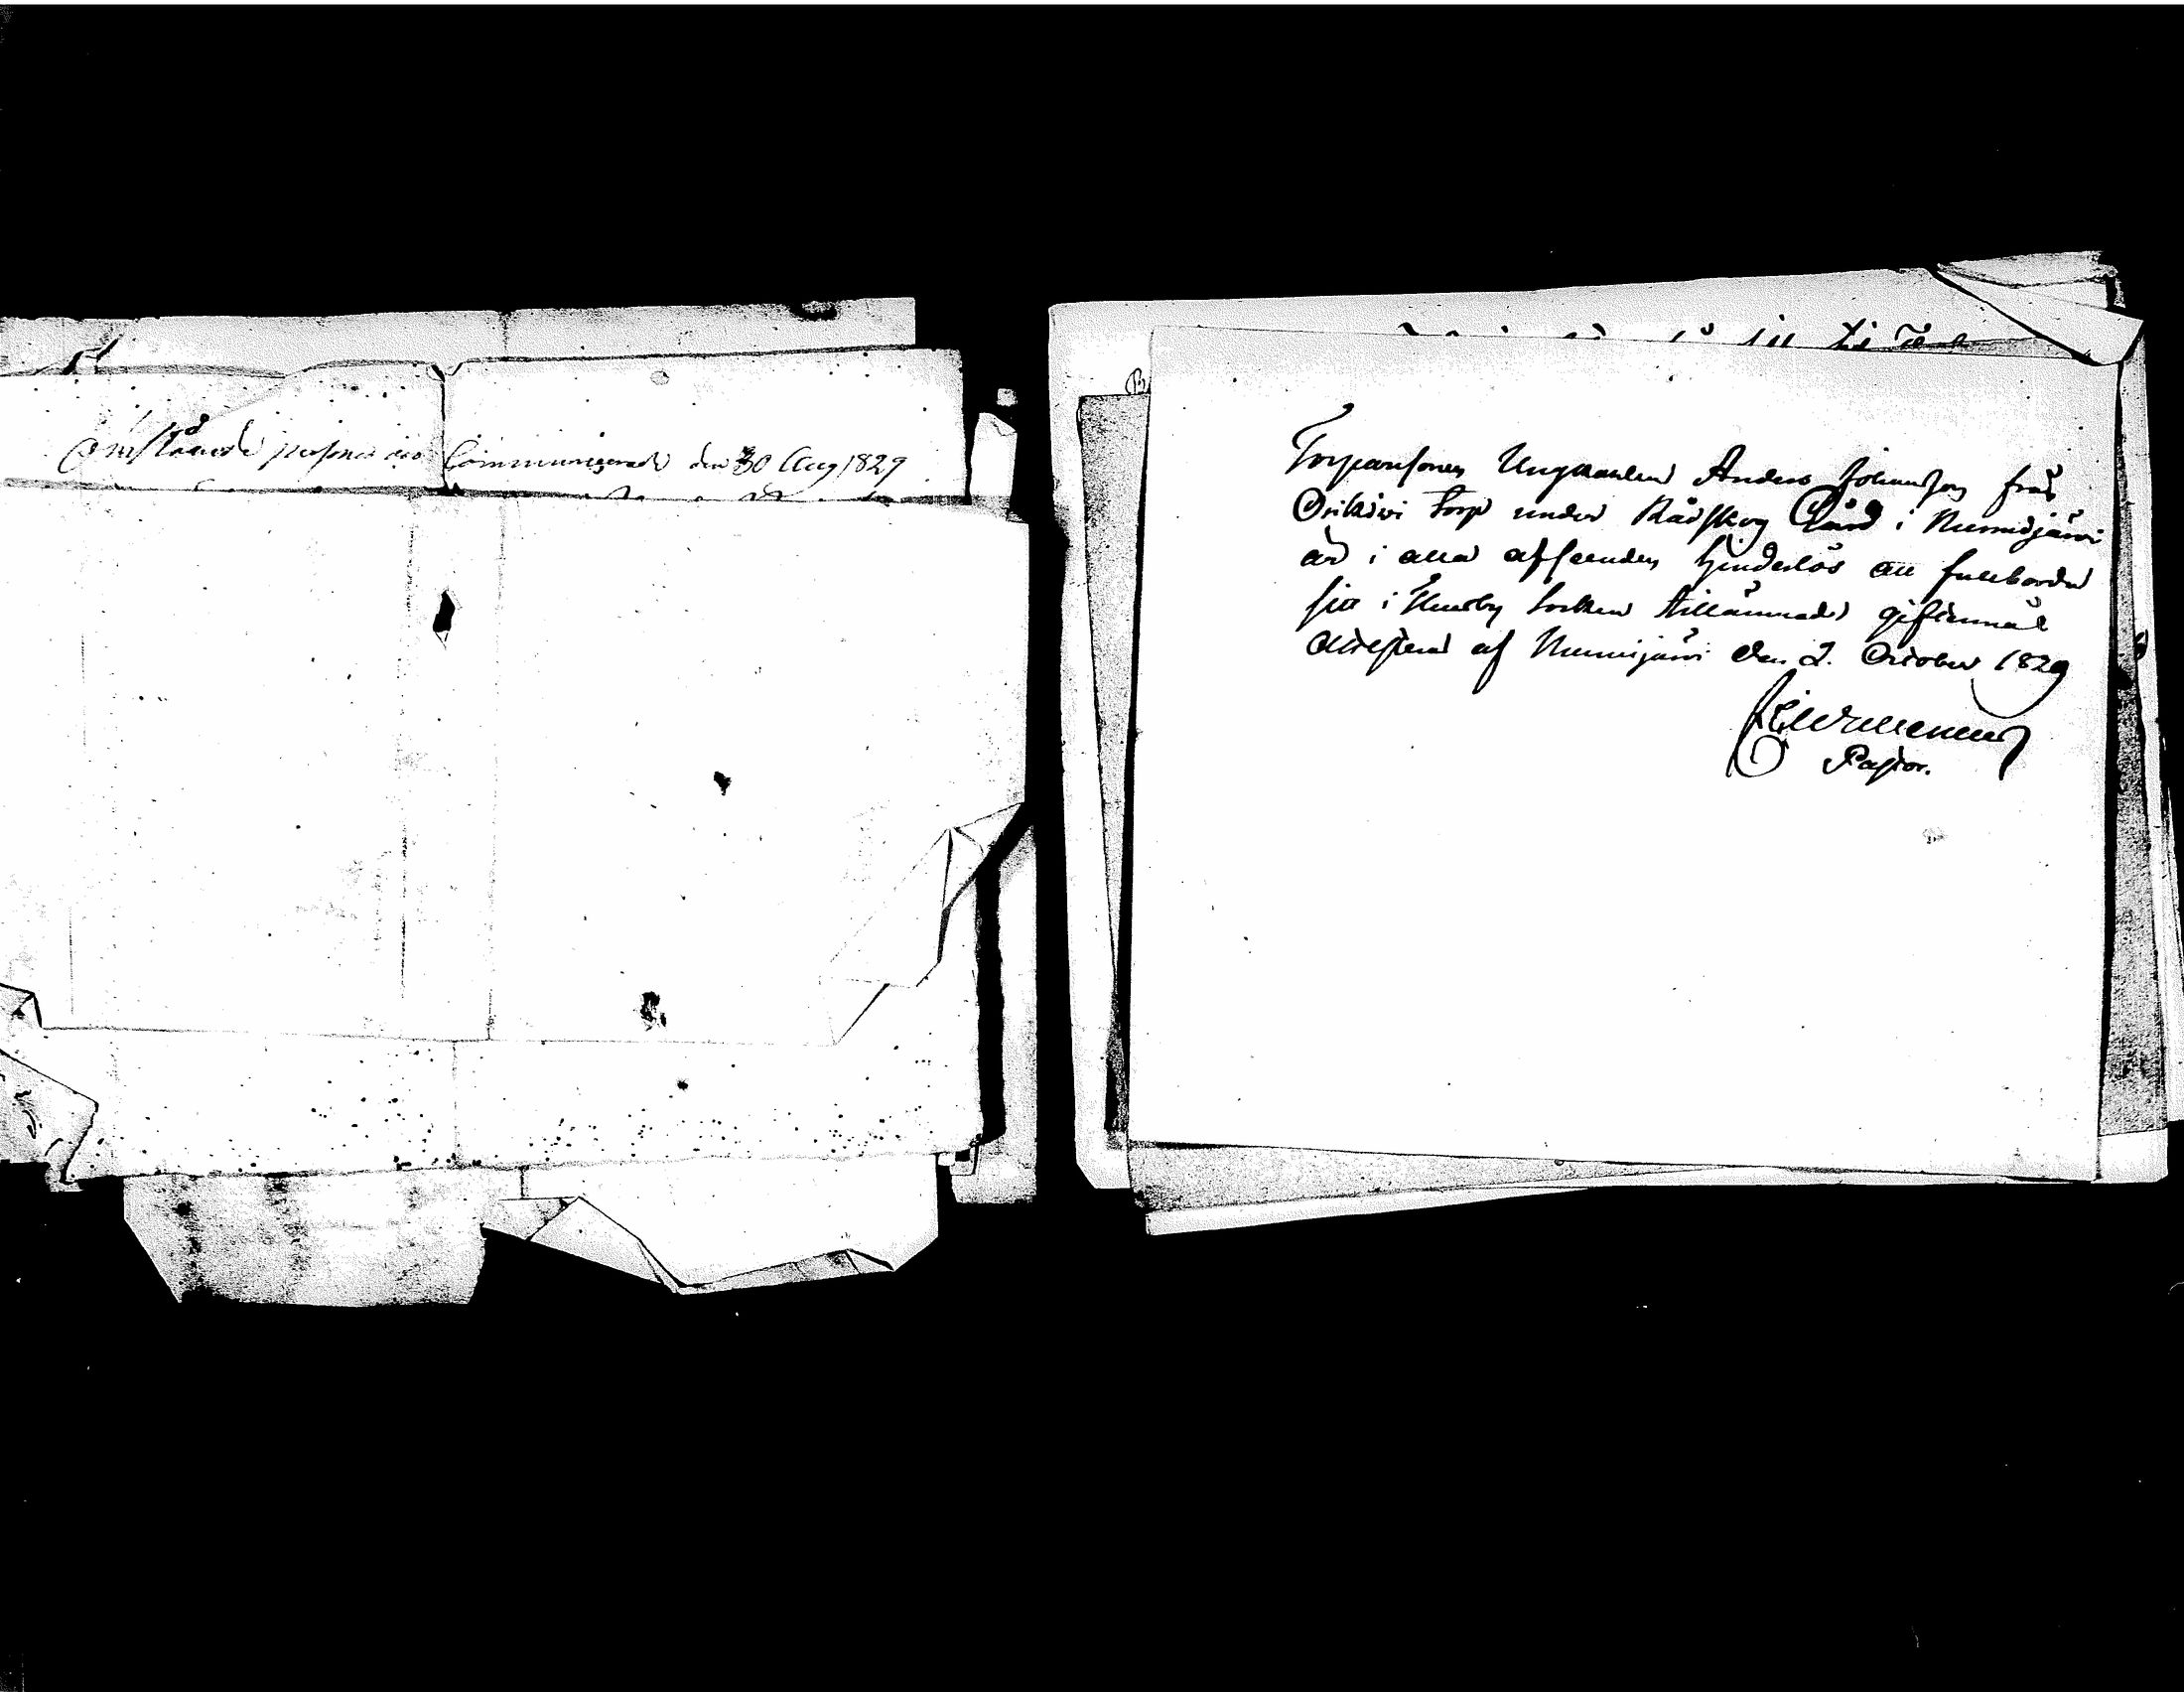 Omstående personer äro Communicerade den 30 Aug 1829
Torparesonen Ungkarlen Anders Johansson från
Orikiwi torp under Rådskog Gård i Nummijärwi
är i alla afseenden hinderlös att fullborda
sitt i Thusby Socken tillämnade giftermål
Attesterad af Nummijärwi den 2. October 1829
Pastor.